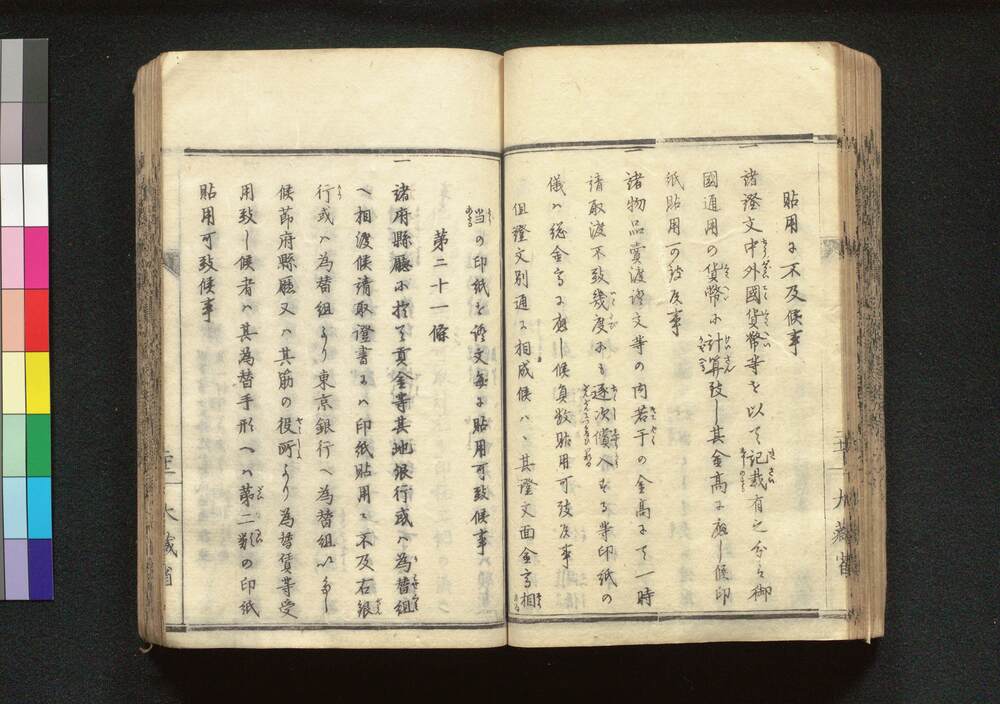 貼用ニ不及候事
一 諸證文中外國貨幣等を以て記載有之分は御
國通用の貨幣に計算致し其金高ニ應し候印
紙貼用可致事
一 諸物品賣渡證文等の内若干の金高にて一時
請取渡不致幾度にも逐次償入する等印紙の
儀ハ総金高ニ應し候員数貼用可致事
但證文別通ニ相成候ハヽ其證文面金高相
当の印紙を證文每ニ貼用可致候事
第二十一條
一 諸府縣廳に於て貢金等其地銀行或ハ為替組
へ相渡候請取證書にハ印紙貼用ニ不及右銀
行或ハ為替組より東京銀行へ為替組いたし
候節府縣廳又ハ其筋の役所より為替賃等受
用致し候者ハ其為替手形へハ第二類の印紙
貼用可致候事
大藏省